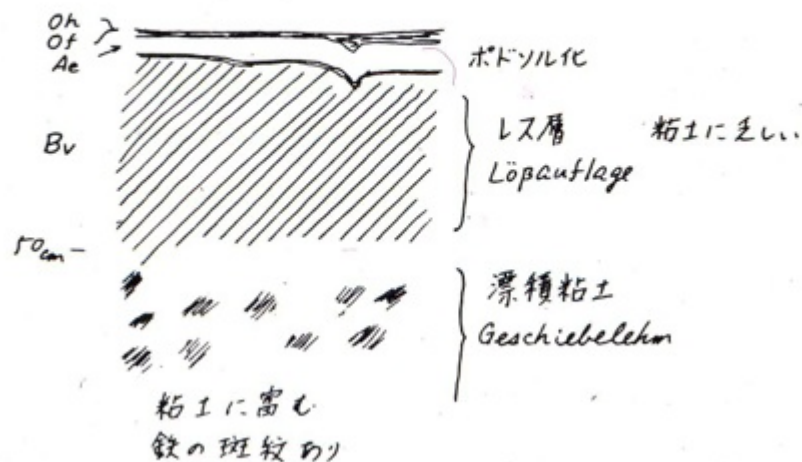 Oh
Of
Ae
ポドソル化
Bv
レス層 粘土に乏しい
Lößauflage
50cm
漂積粘土
Geschiebelehm
粘土に富む
鉄の斑紋あり